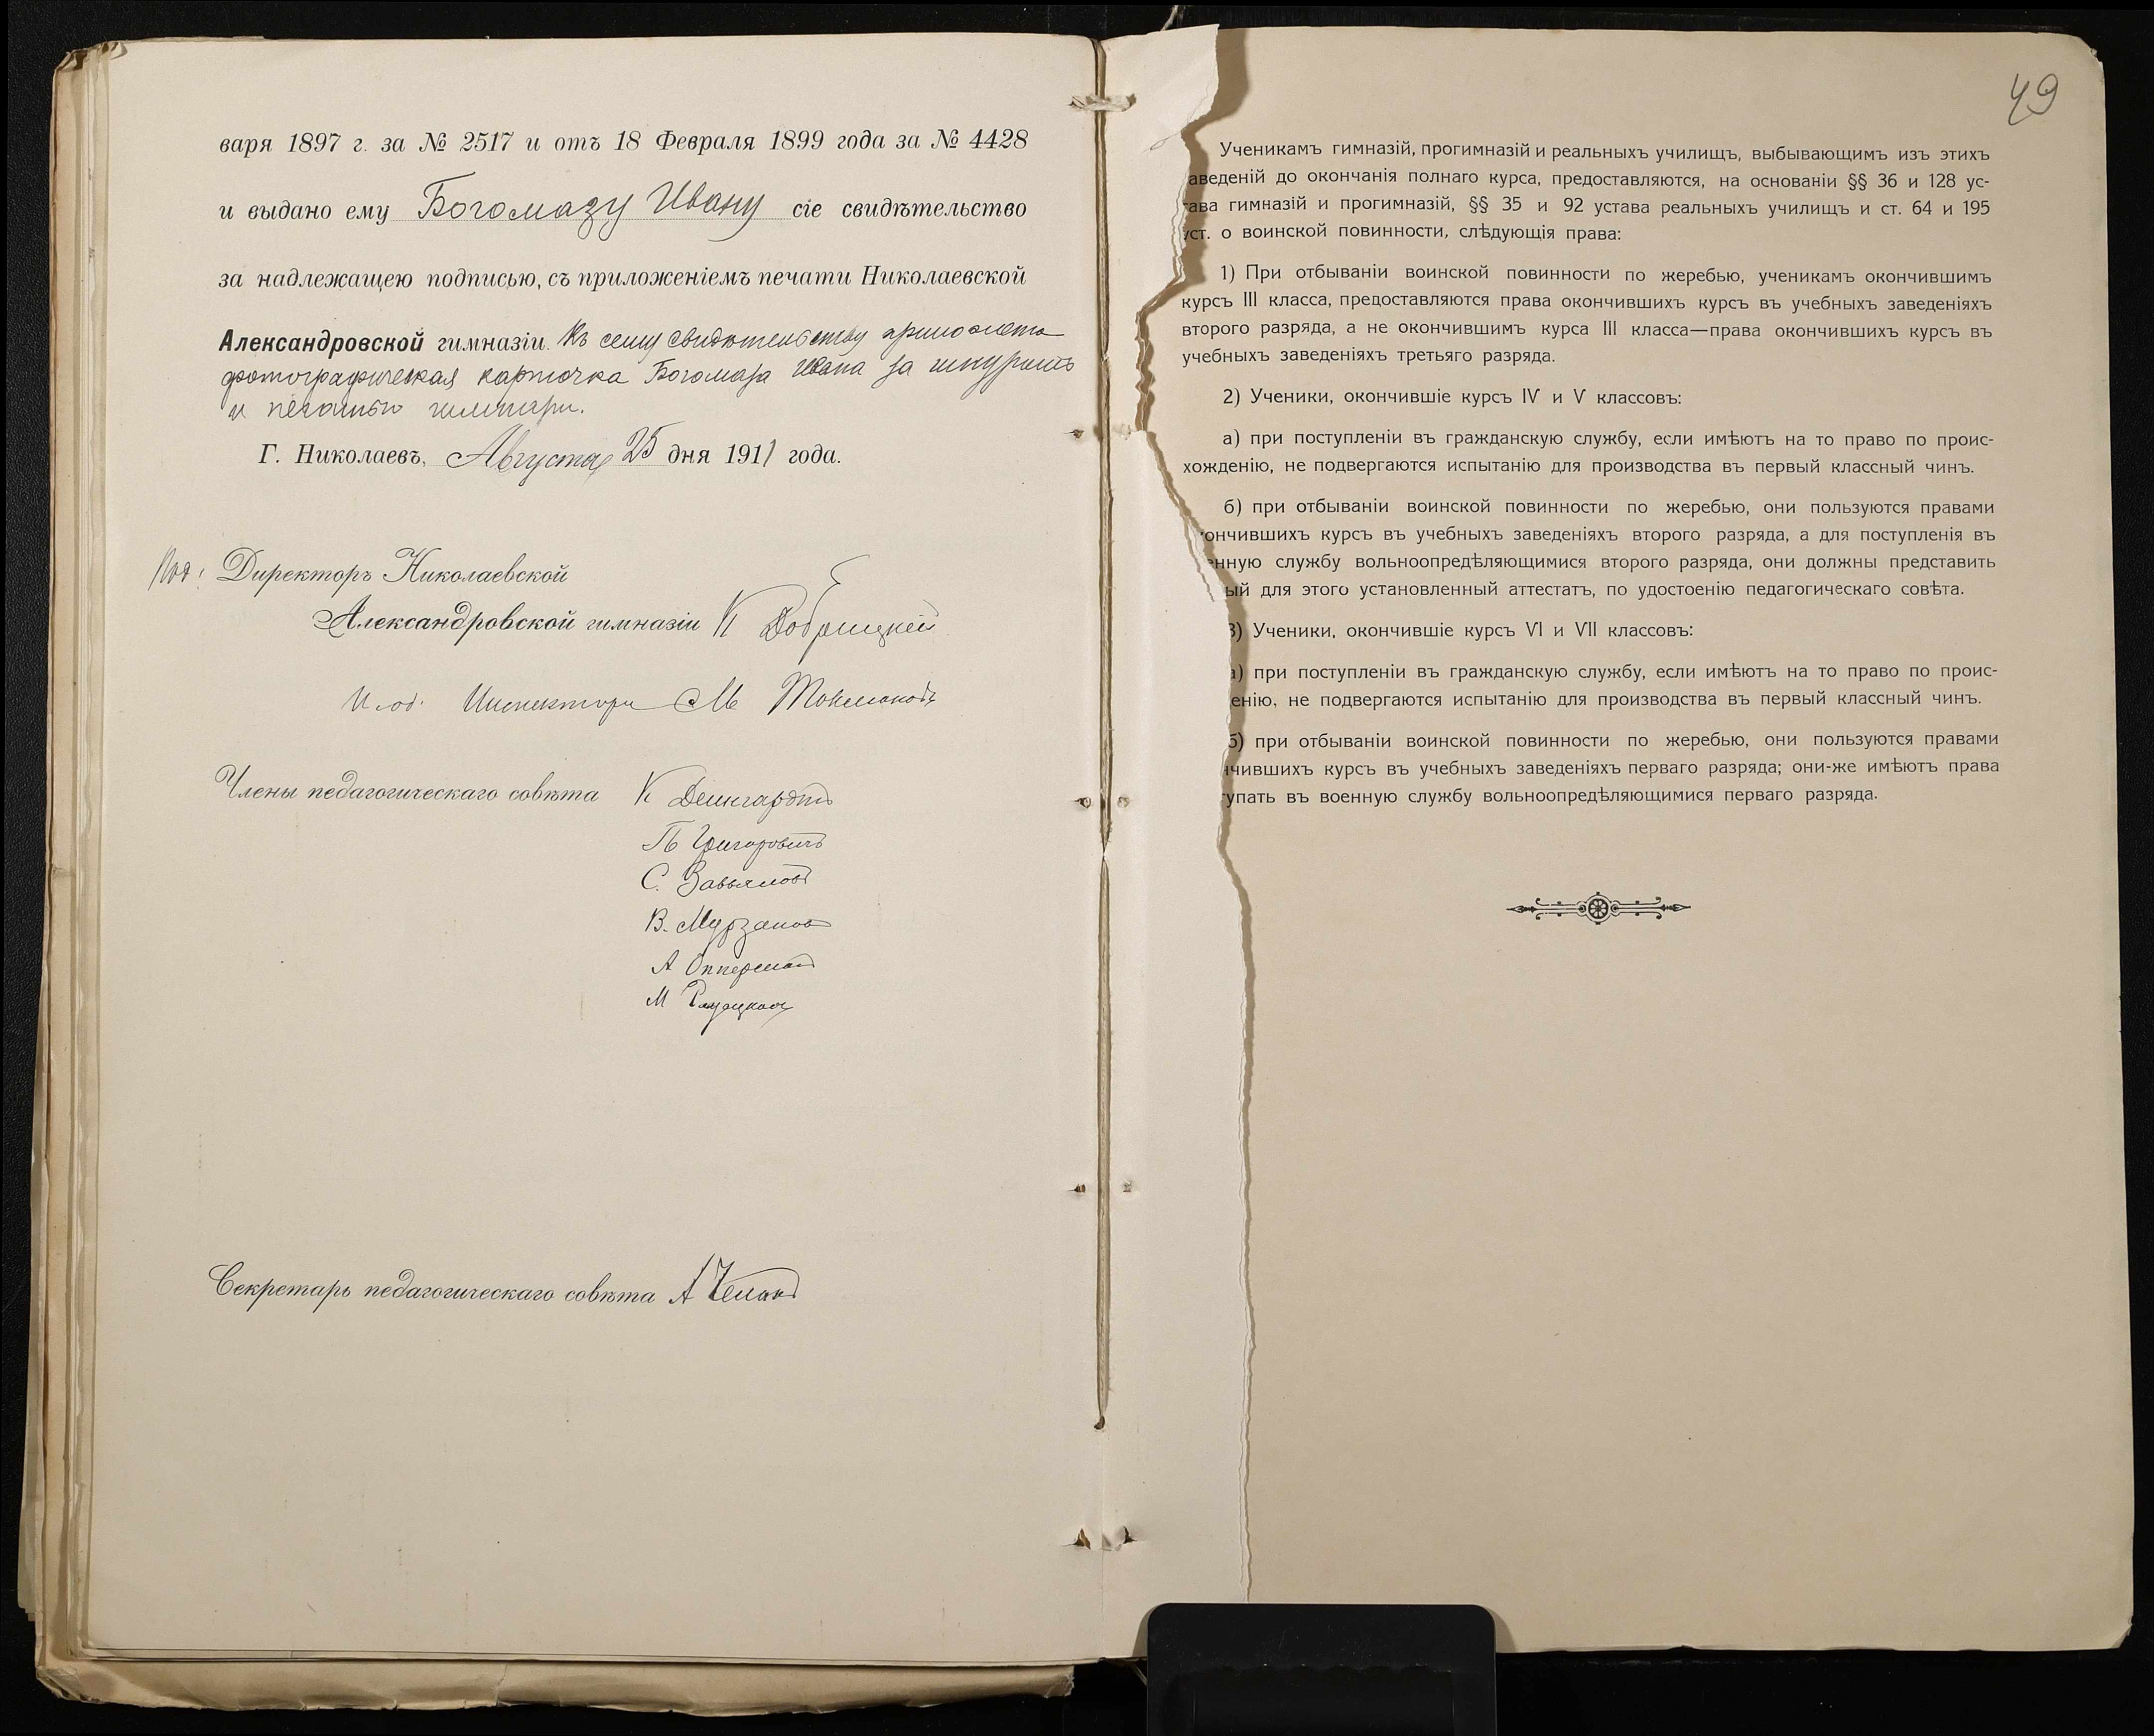 варя 1897 г. за № 2517 и отъ 18 Февраля 1899 года за № 4428
и выдано ему Богомазу Ивану сіе свидѣтельство
за надлежащею подписью, съ приложеніемъ печати Николаевской
Александровской гимназіи. Къ сему свидѣтельству приложена
фотографическая карточка Богомаза Ивана за шнуромъ
и печатью гимназіи.
Г. Николаевъ, Августа 25 дня 1911 года.
Директоръ Николаевской
Александровской гимназіи К
И. об. Инспектора М Токмаковъ
Члены педагогическаго совѣта К Деингардтъ
П Григоровичъ
С. Завьяловъ
В. Мурзановъ
А Опперманъ
М
Секретарь педагогическаго совѣта А
49
Ученикамъ гимназій, прогимназій и реальныхъ училищъ, выбывающимъ изъ этихъ
аведеній до окончанія полнаго курса, предоставляются, на основаніи §§ 36 и 128 ус-
тава гимназій и прогимназій, §§ 35 и 92 устава реальныхъ училищъ и ст. 64 и 195
уст. о воинской повинности, слѣдующія права:
1) При отбываніи воинской повинности по жеребью, ученикамъ окончившимъ
курсъ III класса, предоставляются права окончившихъ курсъ въ учебныхъ заведеніяхъ
второго разряда, а не окончившимъ курса III класса—права окончившихъ курсъ въ
учебныхъ заведеніяхъ третьяго разряда.
2) Ученики, окончившіе курсъ IV и V классовъ:
а) при поступленіи въ гражданскую службу, если имѣютъ на то право по проис-
хожденію, не подвергаются испытанію для производства въ первый классный чинъ.
б) при отбываніи воинской повинности по жеребью, они пользуются правами
ончившихъ курсъ въ учебныхъ заведеніяхъ второго разряда, а для поступленія въ
енную службу вольноопредѣляющимися второго разряда, они должны представить
ый для этого установленный аттестатъ, по удостоенію педагогическаго совѣта.
3) Ученики, окончившіе курсъ VI и VII классовъ:
а) при поступленіи въ гражданскую службу, если имѣютъ на то право по проис-
енію, не подвергаются испытанію для производства въ первый классный чинъ.
б) при отбываніи воинской повинности по жеребью, они пользуются правами
нчившихъ курсъ въ учебныхъ заведеніяхъ перваго разряда; они-же имѣютъ права
тупать въ военную службу вольноопредѣляющимися перваго разряда.